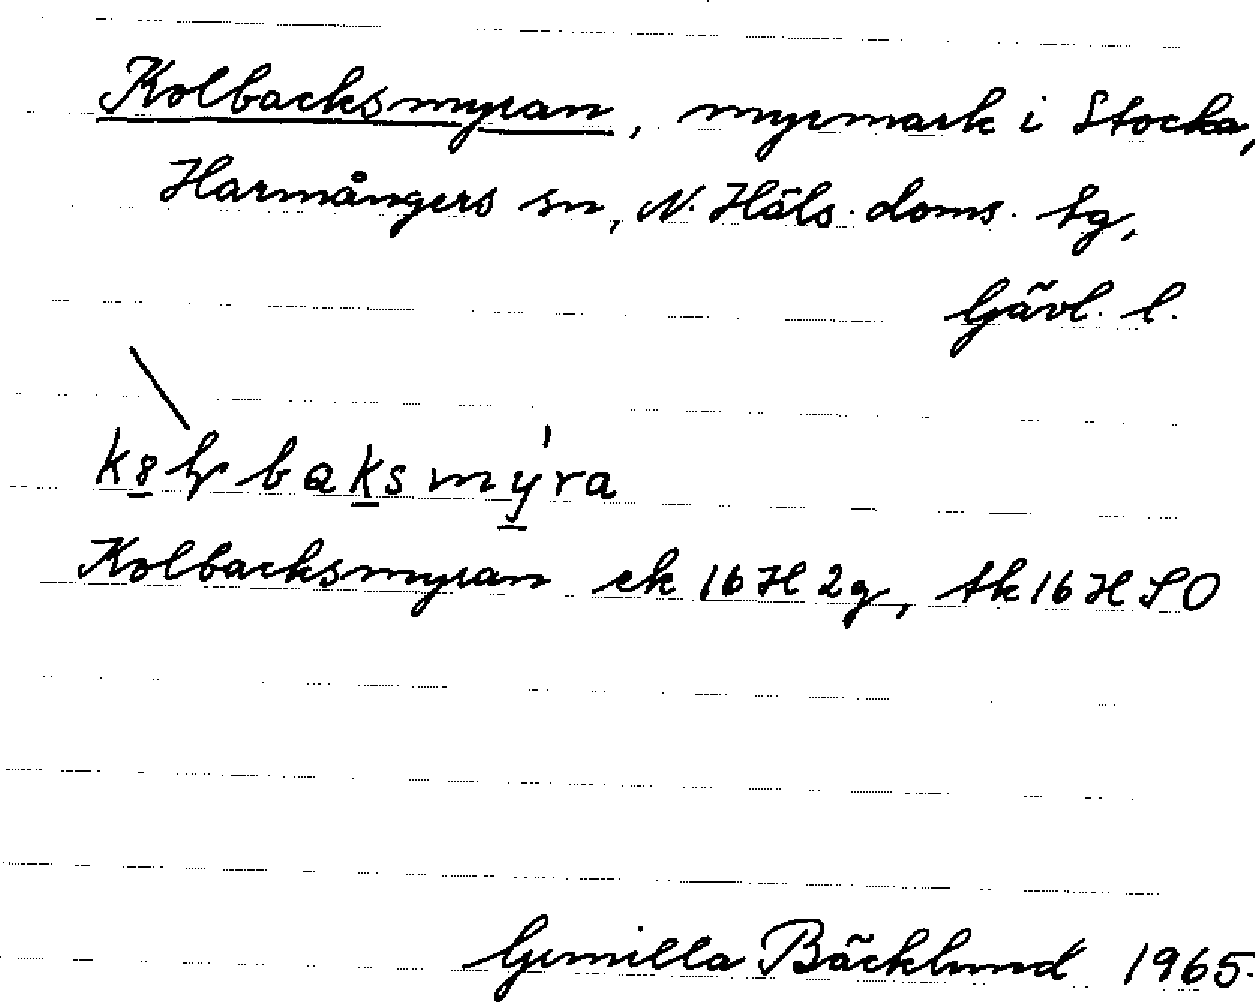 Kolbacksmyran, myrmark i Stocka,
Harmångers sn, N. Häls. doms. tg,
Gävl. l.
baksmýra
Kolbacksmyran ek 16H2g, tk 16H SO
Gunilla Bäcklund 1965.